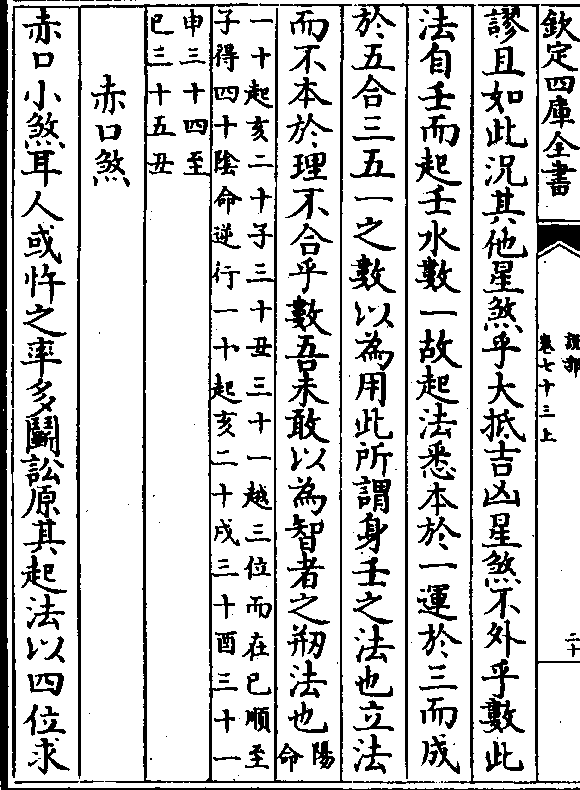 欽定四庫全書
說郛
卷七十三上
二十
謬且如此况其他星煞乎大抵吉凶星煞不外乎數此
法自壬而起壬水數一故起法悉本於一運於三而成
於五合三五一之數以為用此所謂身壬之法也立法
而不本於理不合乎數吾未敢以為智者之剏法也
陽
命
一十起亥二十子三十丑三十一越三位而在巳順至
子得四十陰命逆行一十起亥二十戌三十酉三十一
申三十四至
巳三十五丑
赤口煞
赤口小煞耳人或忤之率多鬭訟原其起法以四位求